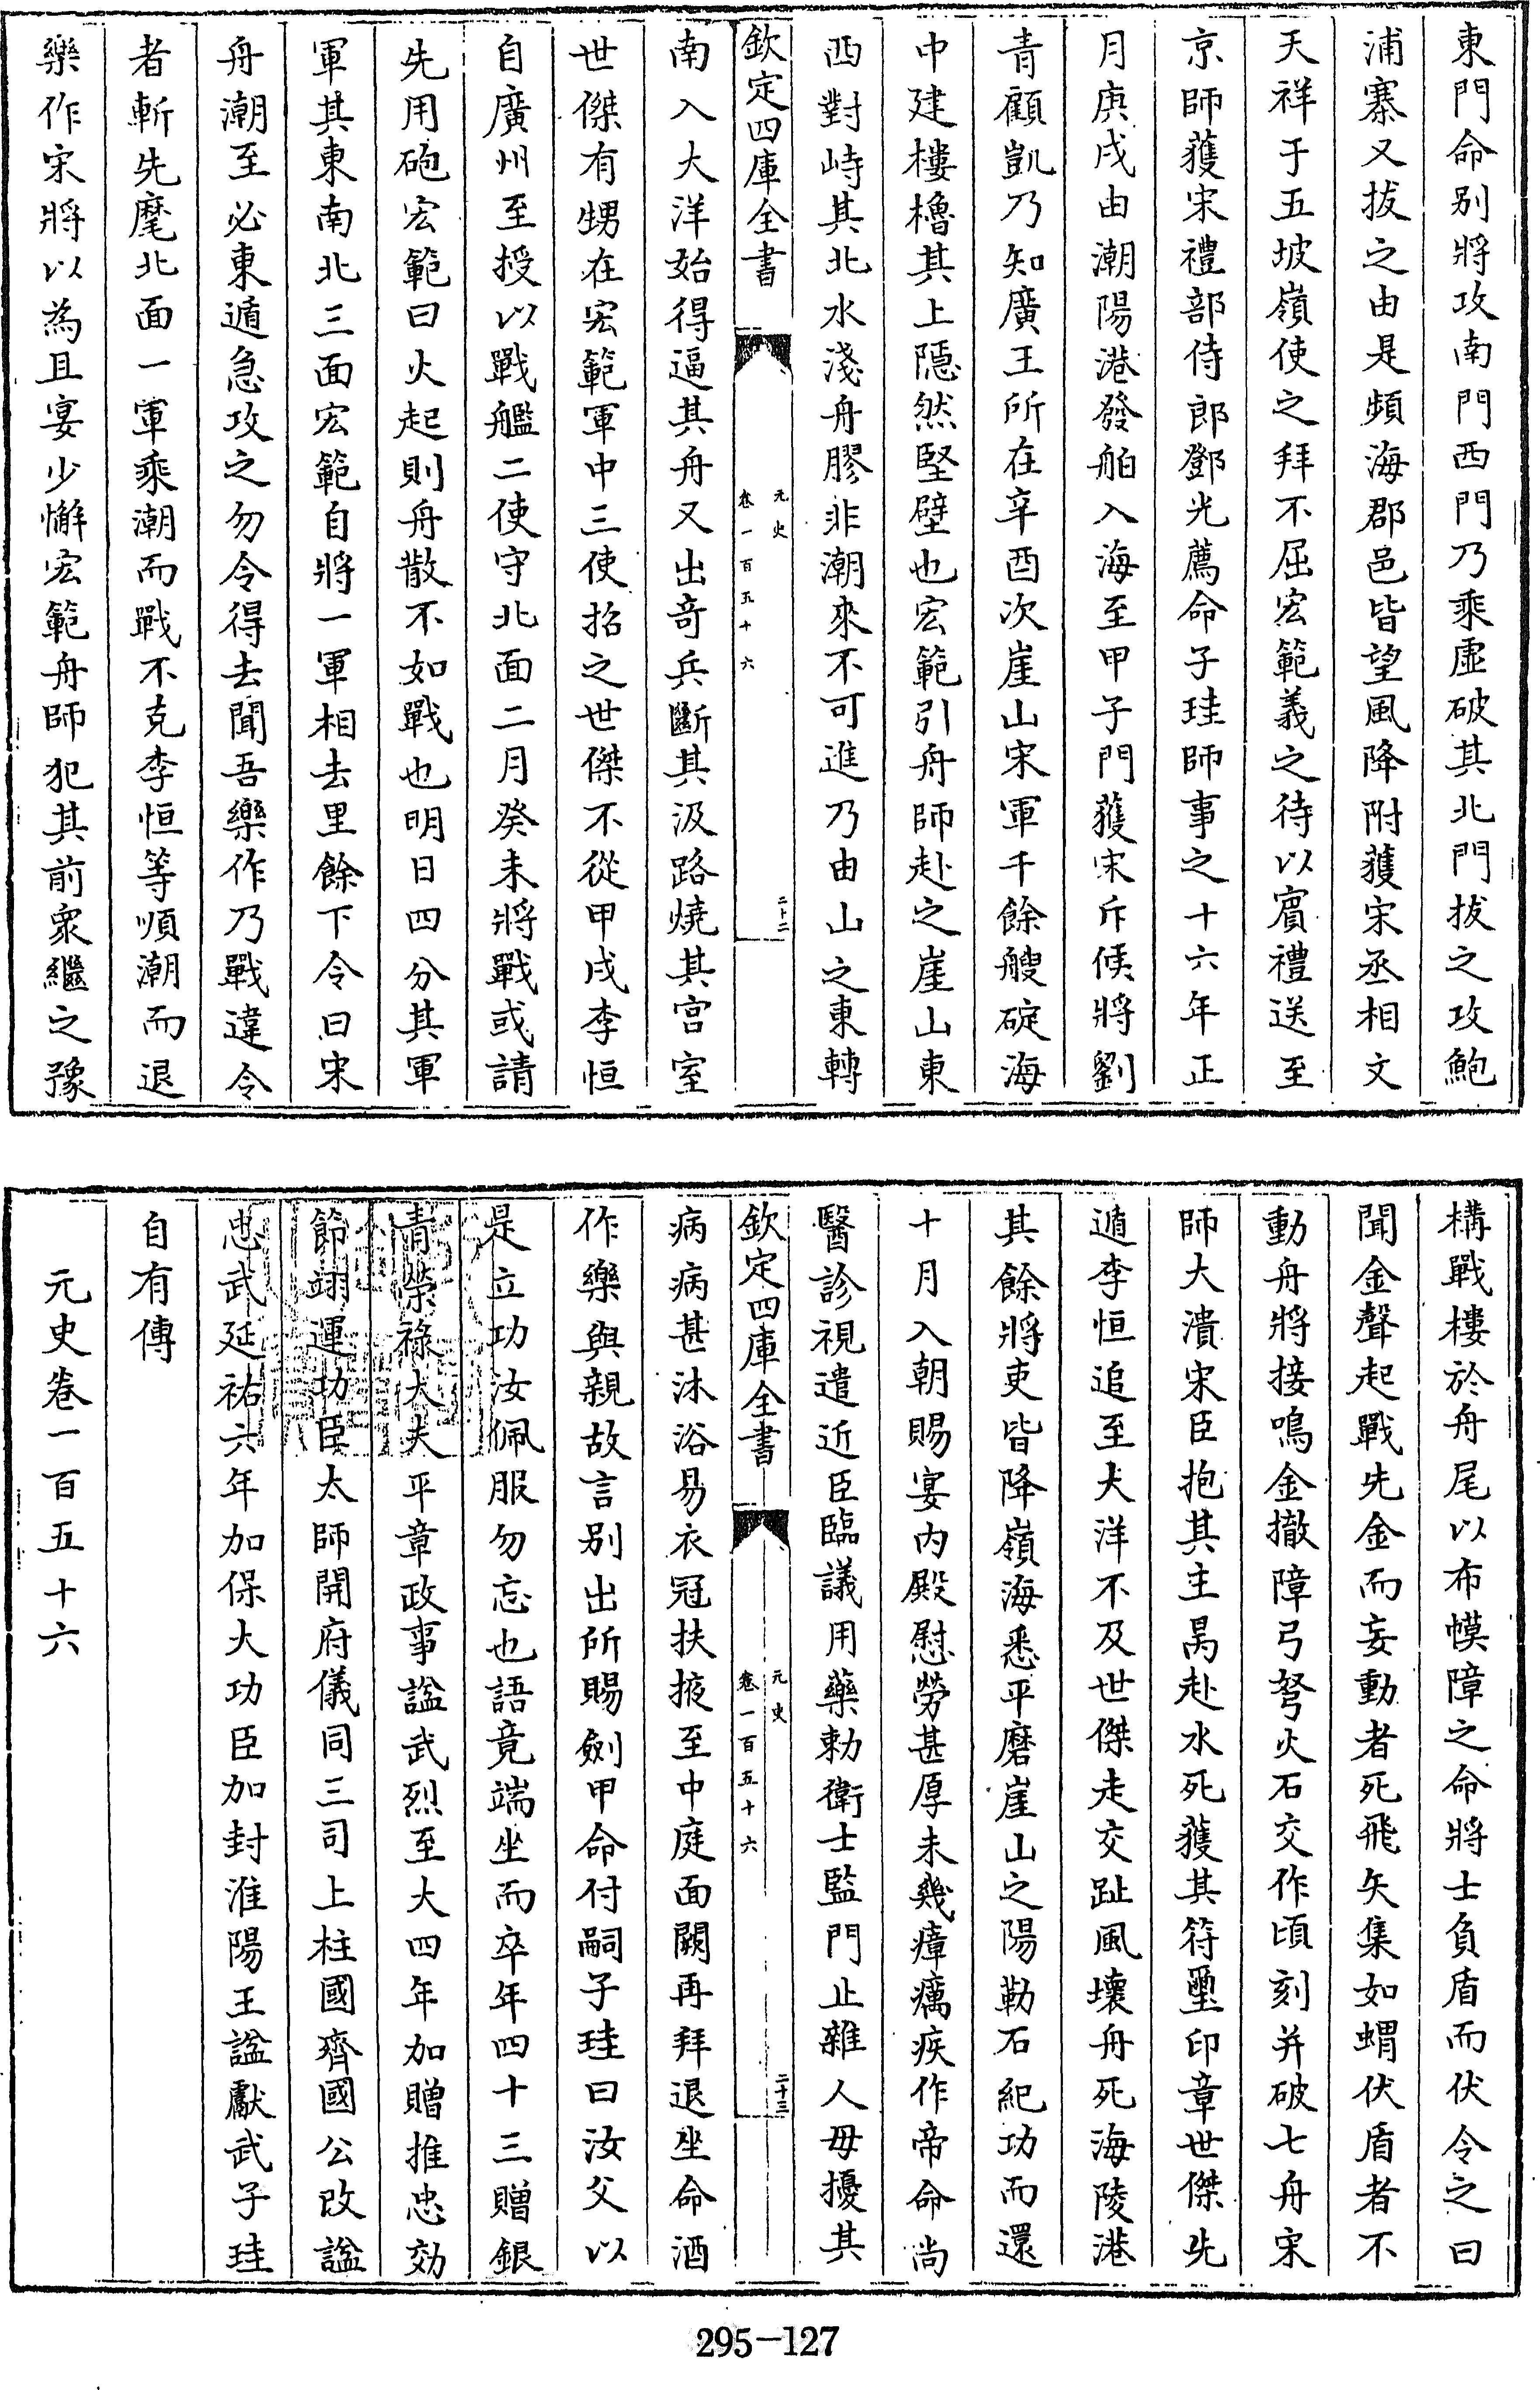 東門命别將攻南門西門乃乘虛破其北門拔之攻鮑
浦寨又拔之由是頻海郡邑皆望風降附獲宋丞相文
天祥于五坡嶺使之拜不屈宏範義之待以賓禮送至
京師獲宋禮部侍郎鄧光薦命子珪師事之十六年正
月庚戌由潮陽港發舶入海至甲子門獲宋斥候將劉
青顧凱乃知廣王所在辛酉次崖山宋軍千餘艘碇海
中建樓櫓其上隱然堅壁也宏範引舟師赴之崖山東
西對峙其北水淺舟膠非潮來不可進乃由山之東轉
欽定四庫全書
元史
卷一百五十六
二十二
南入大洋始得逼其舟又出奇兵斷其汲路燒其宫室
世傑有甥在宏範軍中三使招之世傑不從甲戌李恒
自廣州至授以戰艦二使守北面二月癸未將戰或請
先用砲宏範曰火起則舟散不如戰也明日四分其軍
軍其東南北三面宏範自將一軍相去里餘下令曰宋
舟潮至必東遁急攻之勿令得去聞吾樂作乃戰違令
者斬先麾北面一軍乘潮而戰不克李恒等順潮而退
樂作宋將以為且宴少懈宏範舟師犯其前衆繼之豫
構戰樓於舟尾以布幙障之命將士負盾而伏令之曰
聞金聲起戰先金而妄動者死飛矢集如蝟伏盾者不
動舟將接鳴金撤障弓弩火石交作頃刻并破七舟宋
師大潰宋臣抱其主昺赴水死獲其符璽印章世傑先
遁李恒追至大洋不及世傑走交趾風壞舟死海陵港
其餘將吏皆降嶺海悉平磨崖山之陽勒石紀功而還
十月入朝賜宴内殿慰勞甚厚未幾瘴癘疾作帝命尚
醫診視遣近臣臨議用藥勅衛士監門止雜人毋擾其
欽定四庫全書
元史
卷一百五十六
二十三
病病甚沐浴易衣冠扶掖至中庭面闕再拜退坐命酒
作樂與親故言别出所賜劍甲命付嗣子珪曰汝父以
是立功汝佩服勿忘也語竟端坐而卒年四十三贈銀
青榮祿大夫平章政事諡武烈至大四年加贈推忠効
節翊運功臣太師開府儀同三司上柱國齊國公改諡
忠武延祐六年加保大功臣加封淮陽王諡獻武子珪
自有傳
元史卷一百五十六
295-127